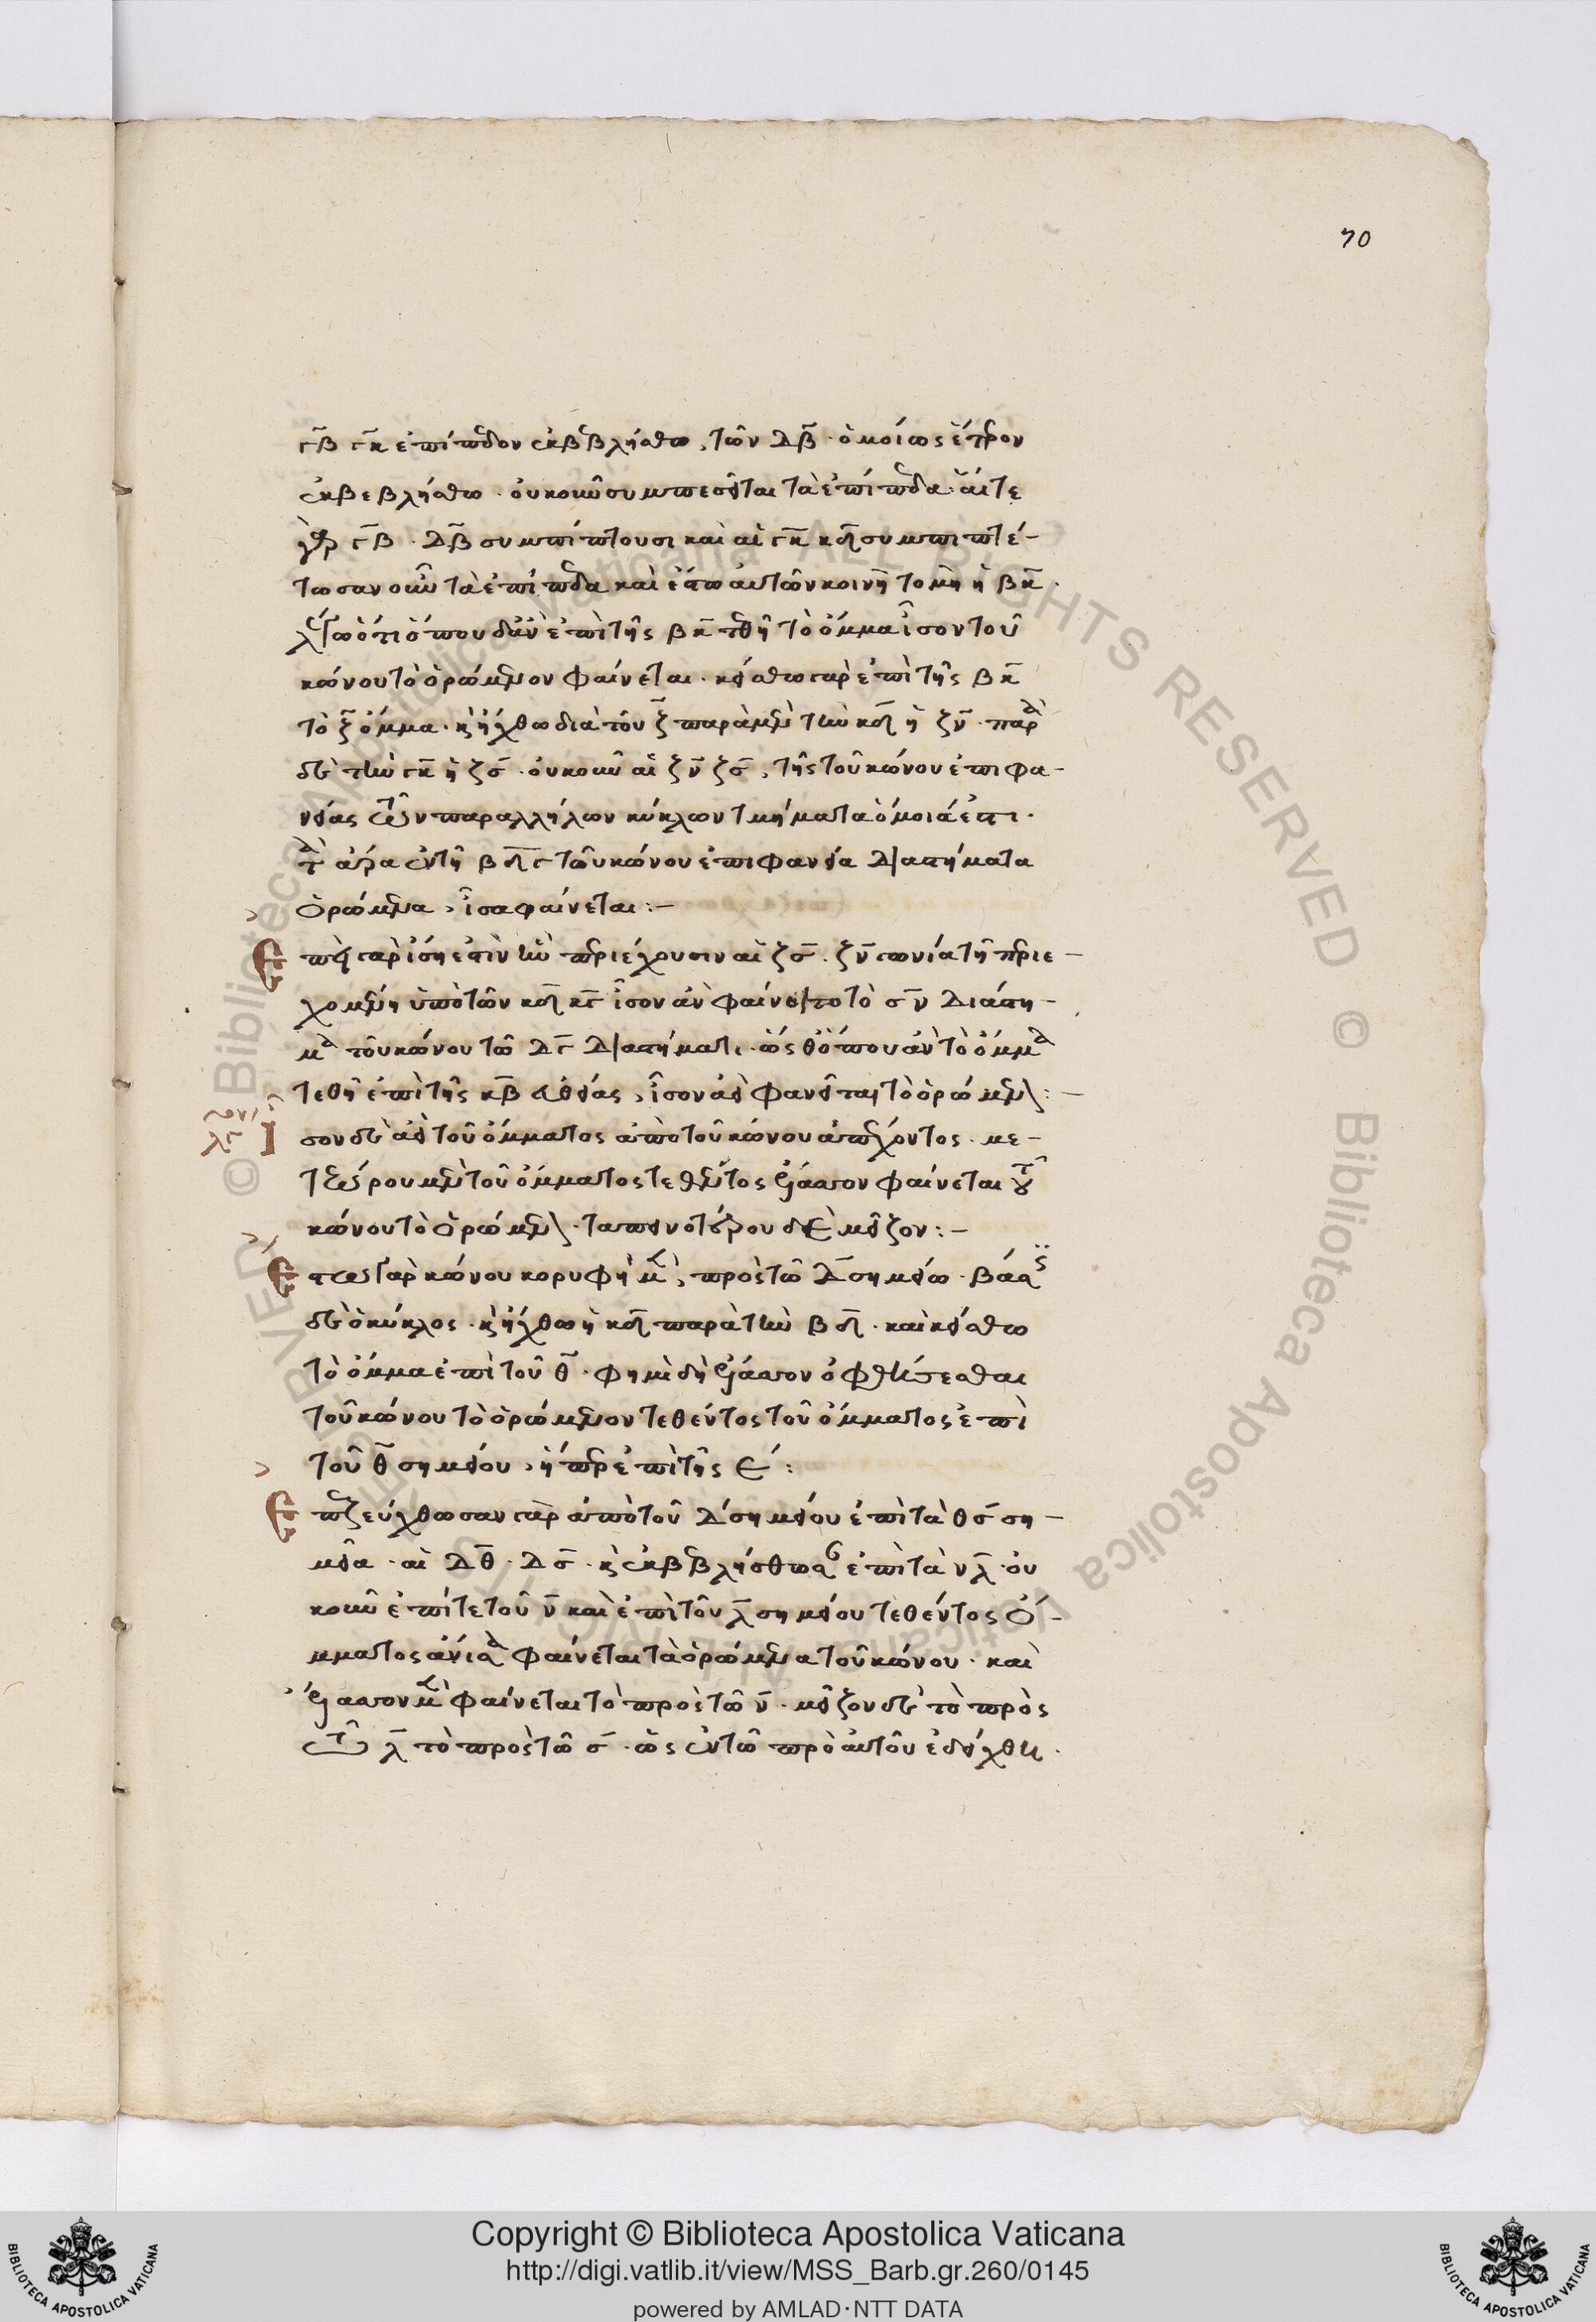 70
γ̅β̅ γ̅κ̅ ἐπίπεδον ἐκβεβλήσθω, τῶν δ̅β̅ · ὁμοίως ἕτερον
ἐκβεβλήσθω · οὐκοῦν συμπεσεῖται τὰ ἐπίπεδα · αἵ τε
γὰρ γ̅β̅ · δ̅β̅ συμπίπτουσι καὶ αἱ γ̅κ̅ κ̅δ̅ συμπιπτέ-
τωσαν οὖν τὰ ἐπίπεδα καὶ ἔστω αὐτῶν κοινὴ τομὴ ἡ β̅κ̅ ·
λέγω ὅτι ὅπου δ' ἂν ἐπὶ τῆς β̅κ̅ τεθῇ τὸ ὄμμα ἴσον τοῦ
κώνου τὸ ὁρώμενον φαίνεται · κείσθω γὰρ ἐπὶ τῆς β̅κ̅
τὸ ζ̅ ὄμμα · καὶ ἤχθω διὰ τοῦ ζ̅ παρὰ μὲν τὴν κ̅δ̅ ἡ ζ̅ν̅ · παρὰ
δὲ τὴν γ̅κ̅ ἡ ζ̅σ̅ · οὐκοῦν αἱ ζ̅ν̅ ζ̅σ̅, τῆς τοῦ κώνου ἐπιφα-
νείας τῶν παραλλήλων κύκλων τμήματα ὅμοιά ἐστι ·
τὰ ἄρα ἐν τῇ β̅δ̅γ̅ τοῦ κώνου ἐπιφανεία διαστήματα
ὁρώμενα, ἴσα φαίνεται :-
Ἐπεὶ γὰρ ἴση ἐστὶν ἣν περιέχουσιν αἱ ζ̅σ̅ · ζ̅ν̅ γωνία τῇ περιε-
χομένη ὑπὸ τῶν κ̅δ̅ κ̅γ̅ ἴσον ἂν φαίνοιτο τὸ σ̅ν̅ διάστη-
μα τοῦ κώνου τῶ δ̅γ̅ διαστήματι · ὥσθ' ὅπου ἂν τὸ ὄμμα
τεθῇ ἐπὶ τῆς κ̅β̅ εὐθείας, ἴσον ἀεὶ φανεῖται τὸ ὁρώμενον :-
σον δὲ ἀεὶ τοῦ ὄμματος ἀπὸ τοῦ κώνου ἀπέχοντος · με-
τεώρου μὲν τοῦ ὄμματος τεθέντος ἔλαττον φαίνεται τοῦ
κώνου τὸ ὁρώμενον · ταπεινοτέρου δὲ μεῖζον :-
Ἔστω γὰρ κώνου κορυφὴ μὲν, πρὸς τῶ δ̅ σημείω · βάσις
δὲ ὁ κύκλος · καὶ ἤχθω ἡ κ̅δ̅ παρὰ τὴν β̅δ̅ · καὶ κείσθω
τὸ ὄμμα ἐπὶ τοῦ θ̅ · φημὶ δὴ ἔλαττον ὀφθήσεσθαι
τοῦ κώνου τὸ ὁρώμενον τεθέντος τοῦ ὄμματος ἐπὶ
τοῦ θ̅ σημείου, ἤπερ ἐπὶ τῆς ε :
Ἐπεζεύχθωσαν γὰρ ἀπὸ τοῦ δ̅ σημείου ἐπὶ τὰ θ̅ σ̅ ση-
μεῖα · αἱ δ̅θ̅ · δ̅σ̅ · καὶ ἐκβεβλήσθωσαν ἐπὶ τὰ ν̅ λ̅ · οὐ
κοῦν ἐπί τε τοῦ ν̅ καὶ ἐπὶ τοῦ λ̅ σημείου τεθέντος ὄ-
μματος ἄνισα φαίνεται τὰ ὁρώμενα τοῦ κώνου · καὶ
ἔλαττον μὲν φαίνεται τὸ πρὸς τῶ ν̅ · μεῖζον δὲ τὸ πρὸς
τῶ λ̅ τὸ πρὸς τῶ σ̅ · ὡς ἐν τῶ πρὸ αὐτοῦ ἐδείχθη ·
Copyright © Biblioteca Apostolica Vaticana
http://digi.vatlib.it/view/MSS_Barb.gr.260/0145
powered by AMLAD·NTT DATA